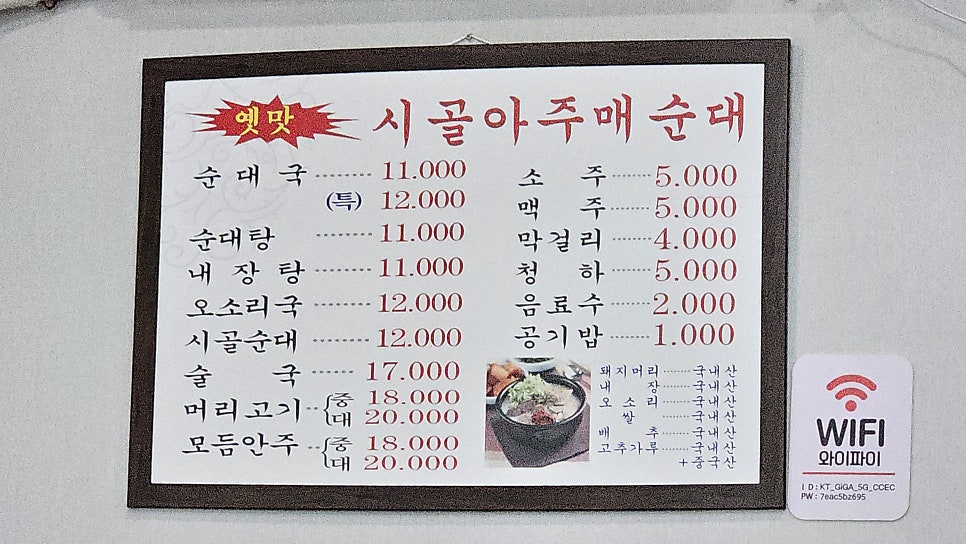 옛맛 시골아주매순대
순대국 ········ 11.000
(특) 12.000
순대탕 ········ 11.000
내장탕 ········ 11.000
오소리국 ········ 12.000
시골순대 ········ 12.000
술국 ········ 17.000
머리고기 ·· {중 18.000
대 20.000
모듬안주 ·· {중 18.000
대 20.000
소주 ······ 5.000
맥주 ······ 5.000
막걸리 ······ 4.000
청하 ······ 5.000
음료수 ······ 2.000
공기밥 ······ 1.000
돼지머리 ······ 국내산
내장 ······ 국내산
오소리 ······ 국내산
쌀 ······ 국내산
배추 ······ 국내산
고추가루 ······ 국내산
+중국산
WIFI
와이파이
ID : KT_GiGA_5G_CCEC
PW : 7eac5bz695